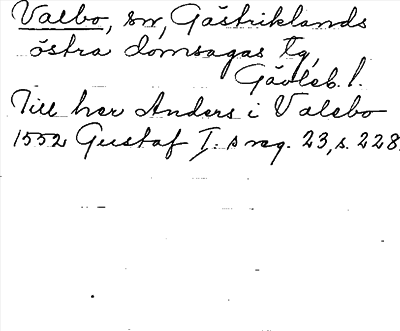 Valbo, sn, Gästriklands
östra domsagas tg,
Gävleb. l.
Till her Anders i Valebo
1552 Gustaf I:s reg. 23, s. 228.